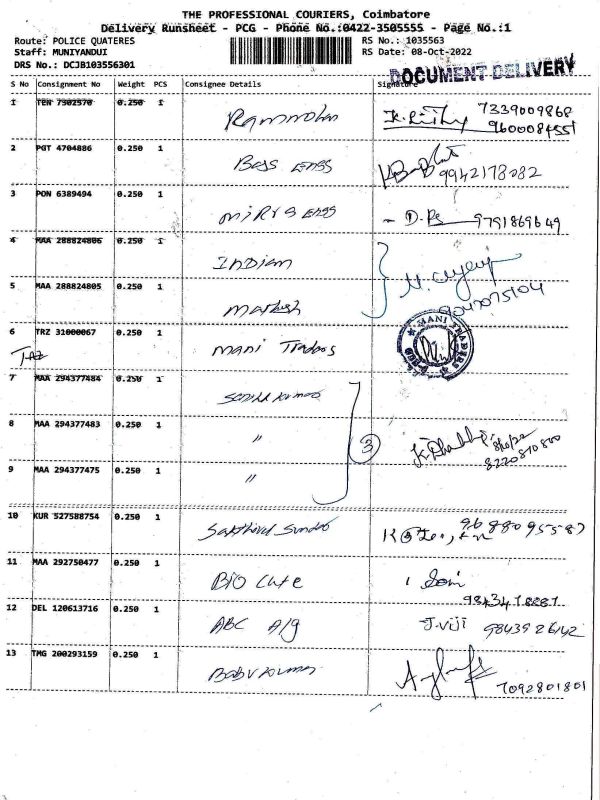 THE PROFESSIONAL COURIERS, Coimbatore
Delivery Runsheet - PCG - Phone No.:0422-3505555 - Page No.:1
Route: POLICE QUATERES RS No.: 1035563
Staff: MUNIYANDUI RS Date: 08-Oct-2022
DRS No.: DCJB103556301
DOCUMENT DELIVERY
S No Consignment No Weight PCS Consignee Details Signature
1 TEN 7302570 0.250 1 Rammohan 7339009868
9600084551
2 PGT 4704886 0.250 1 Bess Engg 9942178082
3 PON 6389494 0.250 1 Engg 9791869649
4 MAA 288824806 0.250 1 Indian
5 MAA 288824805 0.250 1
6 TRZ 31000067 0.250 1 Mani Traders
MANI TRADERS
7 MAA 294377484 0.250 1
8 MAA 294377483 0.250 1 " 3 8/10/22
8220810800
9 MAA 294377475 0.250 1 "
10 KUR 527588754 0.250 1 Sakthivel 9688095587
11 MAA 292750477 0.250 1 Bio Care
12 DEL 120613716 0.250 1 ABC A/g J.Viji 9843926142
13 TMG 200293159 0.250 1 Babu Kumar 7092801801